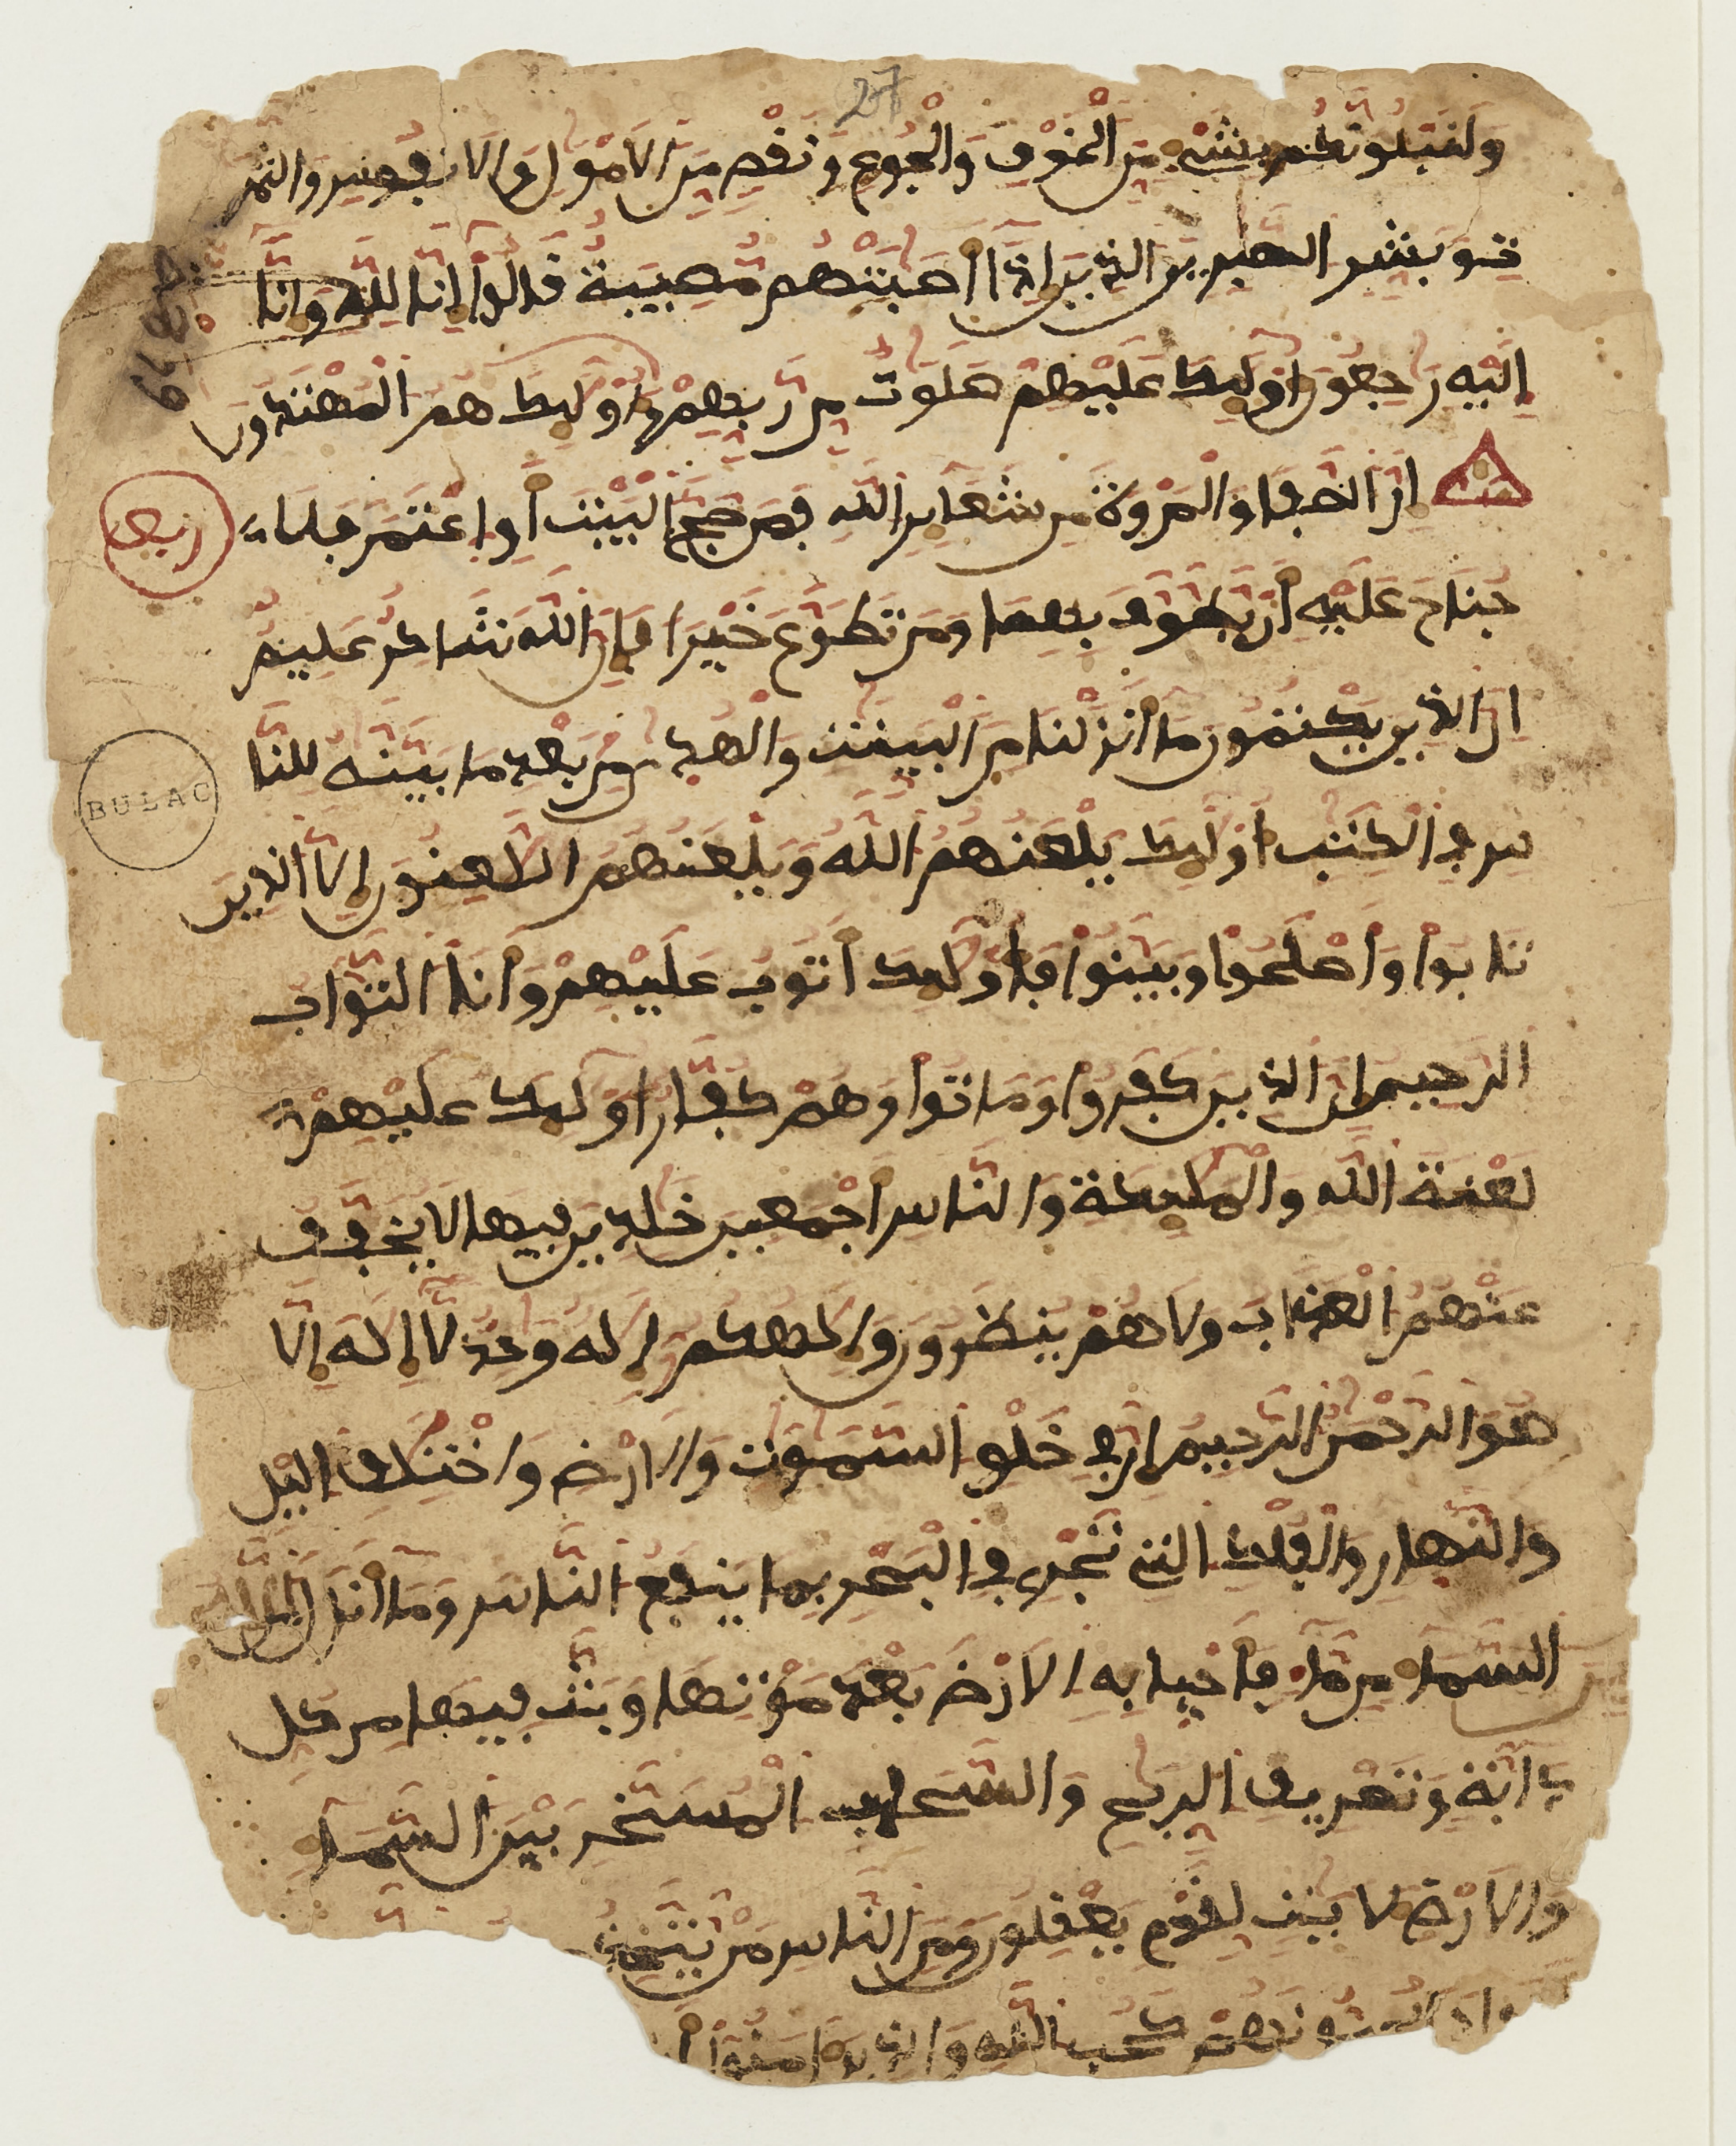 27
ولنبلونكم بشيء من الخوف والجوع ونقص من الامول والانفس والثمر
ت وبشر الصبرين الذين اذا اصبتهم مصيبة قالوا انا لله وانا
اليه رجعون اوليك عليهم صلوت من ربهم واوليك هم المهتدون
ان الصفا والمروة من شعاير الله فمن حج البيت او اعتمر فلا
ربع
جناح عليه ان يطوف بهما ومن تطوع خيرا فان الله شاكر عليم
ان الذين يكتمون ما انزلنا من البينت والهدى من بعد ما بينه للنا
س في الكتب اوليك يلعنهم الله ويلعنهم اللعنون الا الذين
BULAC
تابوا واصلحوا وبينوا فاوليك اتوب عليهم وانا التواب
الرحيم ان الذين كفروا وماتوا وهم كفار اوليك عليهم
لعنة الله والمليكة والناس اجمعين خلدين فيها لا يخفف
عنهم العذاب ولا هم ينظرون والهكم اله وحد لا اله الا
هو الرحمن الرحيم ان في خلق السموت والارض واختلف اليل
والنهار والفلك التي تجري في البحر بما ينفع الناس وما انزل الله من
السماء من ماء فاحيا به الارض بعد موتها وبث فيها من كل
دابة وتصريف الريح والسحاب المسخر بين السماء
والارض لايت لقوم يعقلون ومن الناس من يتخذ
يحبونهم كحب الله والذين امنوا ا